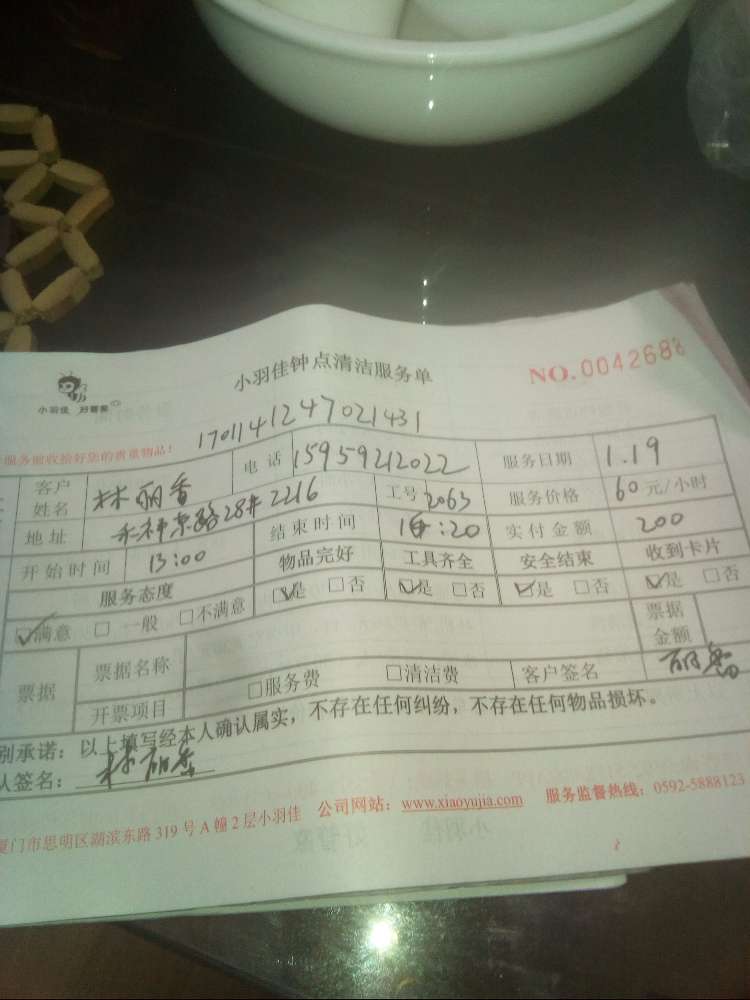 小羽佳钟点清洁服务单
NO.0042688
小羽佳 好管家
1701141247021431
服务前收拾好您的贵重物品!
客户姓名 林丽香 电话 15959212022 服务日期 1.19
地址 禾祥东路28# 2216 工号 2063 服务价格 60元/小时
开始时间 13:00 结束时间 16:20 实付金额 200
服务态度 物品完好 工具齐全 安全结束 收到卡片
☑满意 □一般 □不满意 ☑是 □否 ☑是 □否 ☑是 □否 ☑是 □否
票据 票据名称 票据金额
开票项目 □服务费 □清洁费 客户签名 丽香
别承诺：以上填写经本人确认属实，不存在任何纠纷，不存在任何物品损坏。
人签名：林丽香
厦门市思明区湖滨东路319号A幢2层小羽佳 公司网站：www.xiaoyujia.com 服务监督热线：0592-5888123